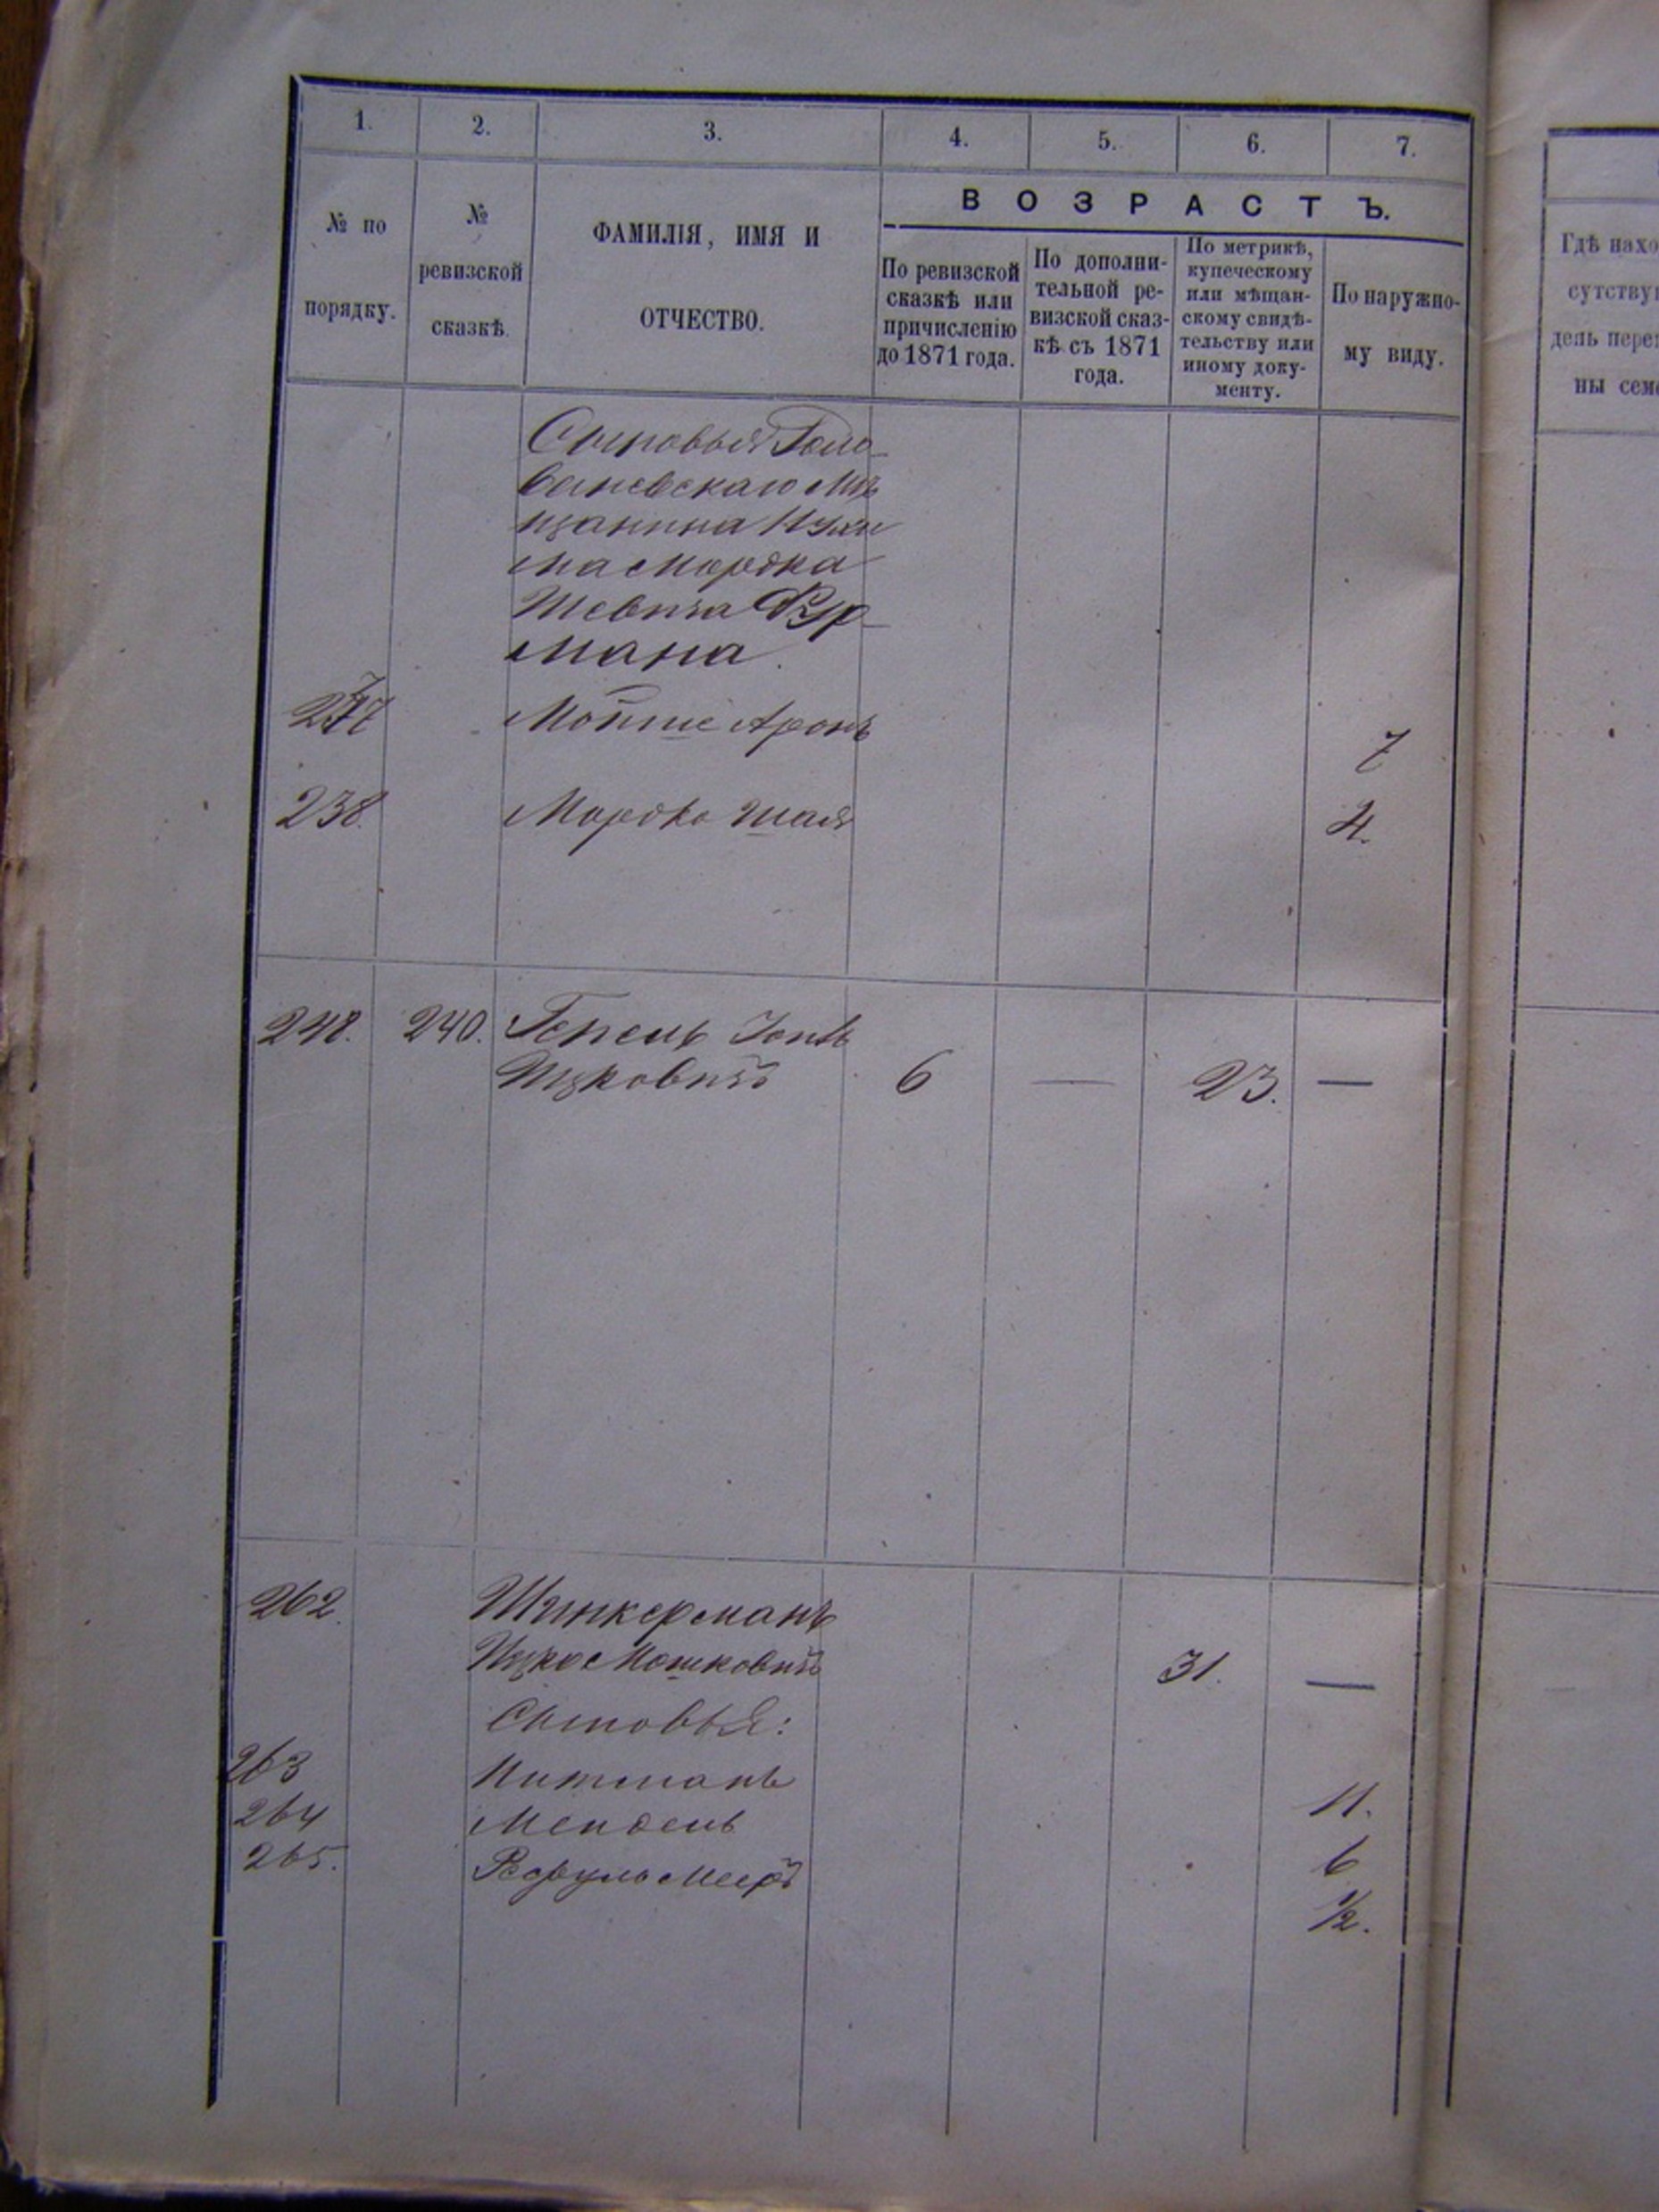 1. 2. 3. 4. 5. 6. 7.
№ по
порядку.
№
ревизской
сказкѣ.
ФАМИЛІЯ, ИМЯ И
ОТЧЕСТВО.
ВОЗРАСТЪ.
По ревизской
сказкѣ или
причисленію
до 1871 года.
По дополни-
тельной ре-
визской сказ-
кѣ съ 1871
года.
По метрикѣ,
купеческому
или мѣщан-
скому свидѣ-
тельству или
иному доку-
менту.
По наружно-
му виду.
Сыновья Голо-
ваневскаго Мѣ
щанина
ма Мордка
Шевича Фур-
мана.
Мошие Аронъ 7
238. Мордко Шая 4.
248. 240. Гепель
Ицковичъ 6 — 23. —
262. Шинкерманъ
Ицко Мошковичъ 31. —
Сыновья:
263 Нутманъ 11.
264 Мендель 6
265. Мееръ 1/2.
Гдѣ нахо
сутствую
дѣль пере
ны сем